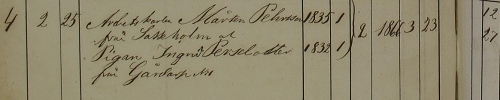 4 2 25 Arbetskarlen Mårten Pehrsson 1835 1 2 1866 3 23 12
från Saxholm at 27
Pigan Ingrid Persdotter 1832 1
från Gärdarp No 1